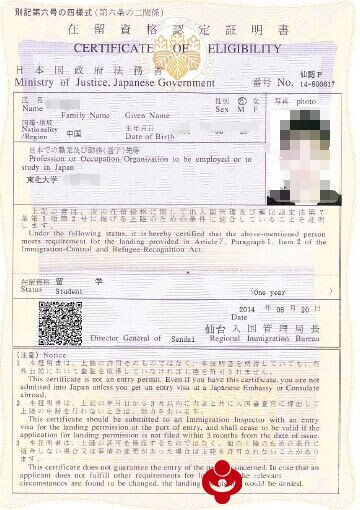 別記第六号の四様式（第六条の二関係）
在留資格認定証明書
CERTIFICATE OF ELIGIBILITY
日本国政府法務省
Ministry of Justice, Japanese Government
仙認P
番号 No. 14-600617
氏名
Name
Family Name Given Name
性別 男 女
Sex M F
写真 photo
国籍・地域
Nationality
/Region
中国
生年月日
Date of Birth
日本での職業及び勤務(通学)先等
Profession or Occupation/Organization to be employed or to
study in Japan
東北大学
上記の者は、次の在留資格に関して出入国管理及び難民認定法第7
条第1項第2号に掲げる上陸のための条件に適合していることを証明
します。
Under the following status, it is hereby certified that the above-mentioned person
meets requirement for the landing provided in Article 7, Paragraph 1, Item 2 of the
Immigration-Control and Refugee-Recognition Act.
在留資格 留学
Status Student
(One year)
2014 年 08 月 20 日
Date
仙台入国管理局長
Director General of Sendai Regional Immigration Bureau
(注意) Notice
1 本証明書は、上陸の許可そのものではなく、本証明書を所持していても、在
外公館において査証を取得していなければ上陸を許可されません。
This certificate is not an entry permit. Even if you have this certificate, you are not
admitted into Japan unless you get an entry visa at a Japanese Embassy or Consulate
abroad.
2 本証明書は、上記の年月日から3か月以内に査証と共に入国審査官に提出して
上陸の申請を行わないときは、効力を失います。
This certificate should be submitted to an Immigration Inspector with an entry
visa for the landing permission at the port of entry, and shall cease to be valid if the
application for landing permission is not filed within 3 months from the date of issue.
3 本証明書は、上陸の許可を保証するものではなく、他の上陸のための条件に
適合しない場合又は事情の変更があった場合は上陸を許可されないことがあり
ます。
This certificate does not guarantee the entry of the person concerned. In case that an
applicant does not fulfill other requirements for landing
circumstances are found to be changed, the landing be denied.